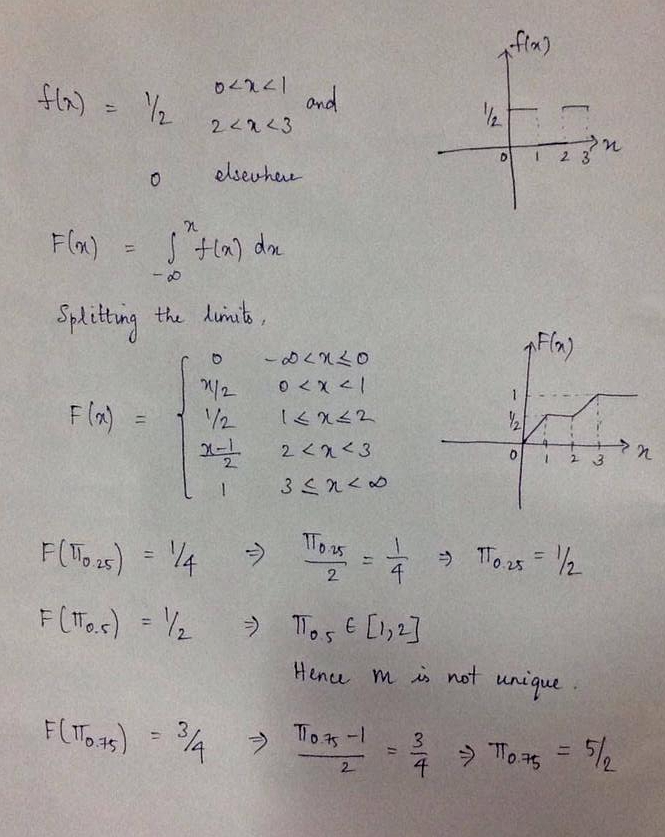 f(x) = 1/2 0<x<1 and
2<x<3
0 elsewhere
f(x)
1/2
0 1 2 3 x
F(x) = ∫_{-∞}^{x} f(x) dx
Splitting the limits,
F(x) = { 0 -∞<x≤0
x/2 0<x<1
1/2 1≤x≤2
(x-1)/2 2<x<3
1 3≤x<∞
F(x)
1
1/2
0 1 2 3 x
F(π_{0.25}) = 1/4 ⇒ π_{0.25}/2 = 1/4 ⇒ π_{0.25} = 1/2
F(π_{0.5}) = 1/2 ⇒ π_{0.5} ∈ [1,2]
Hence m is not unique.
F(π_{0.75}) = 3/4 ⇒ (π_{0.75}-1)/2 = 3/4 ⇒ π_{0.75} = 5/2